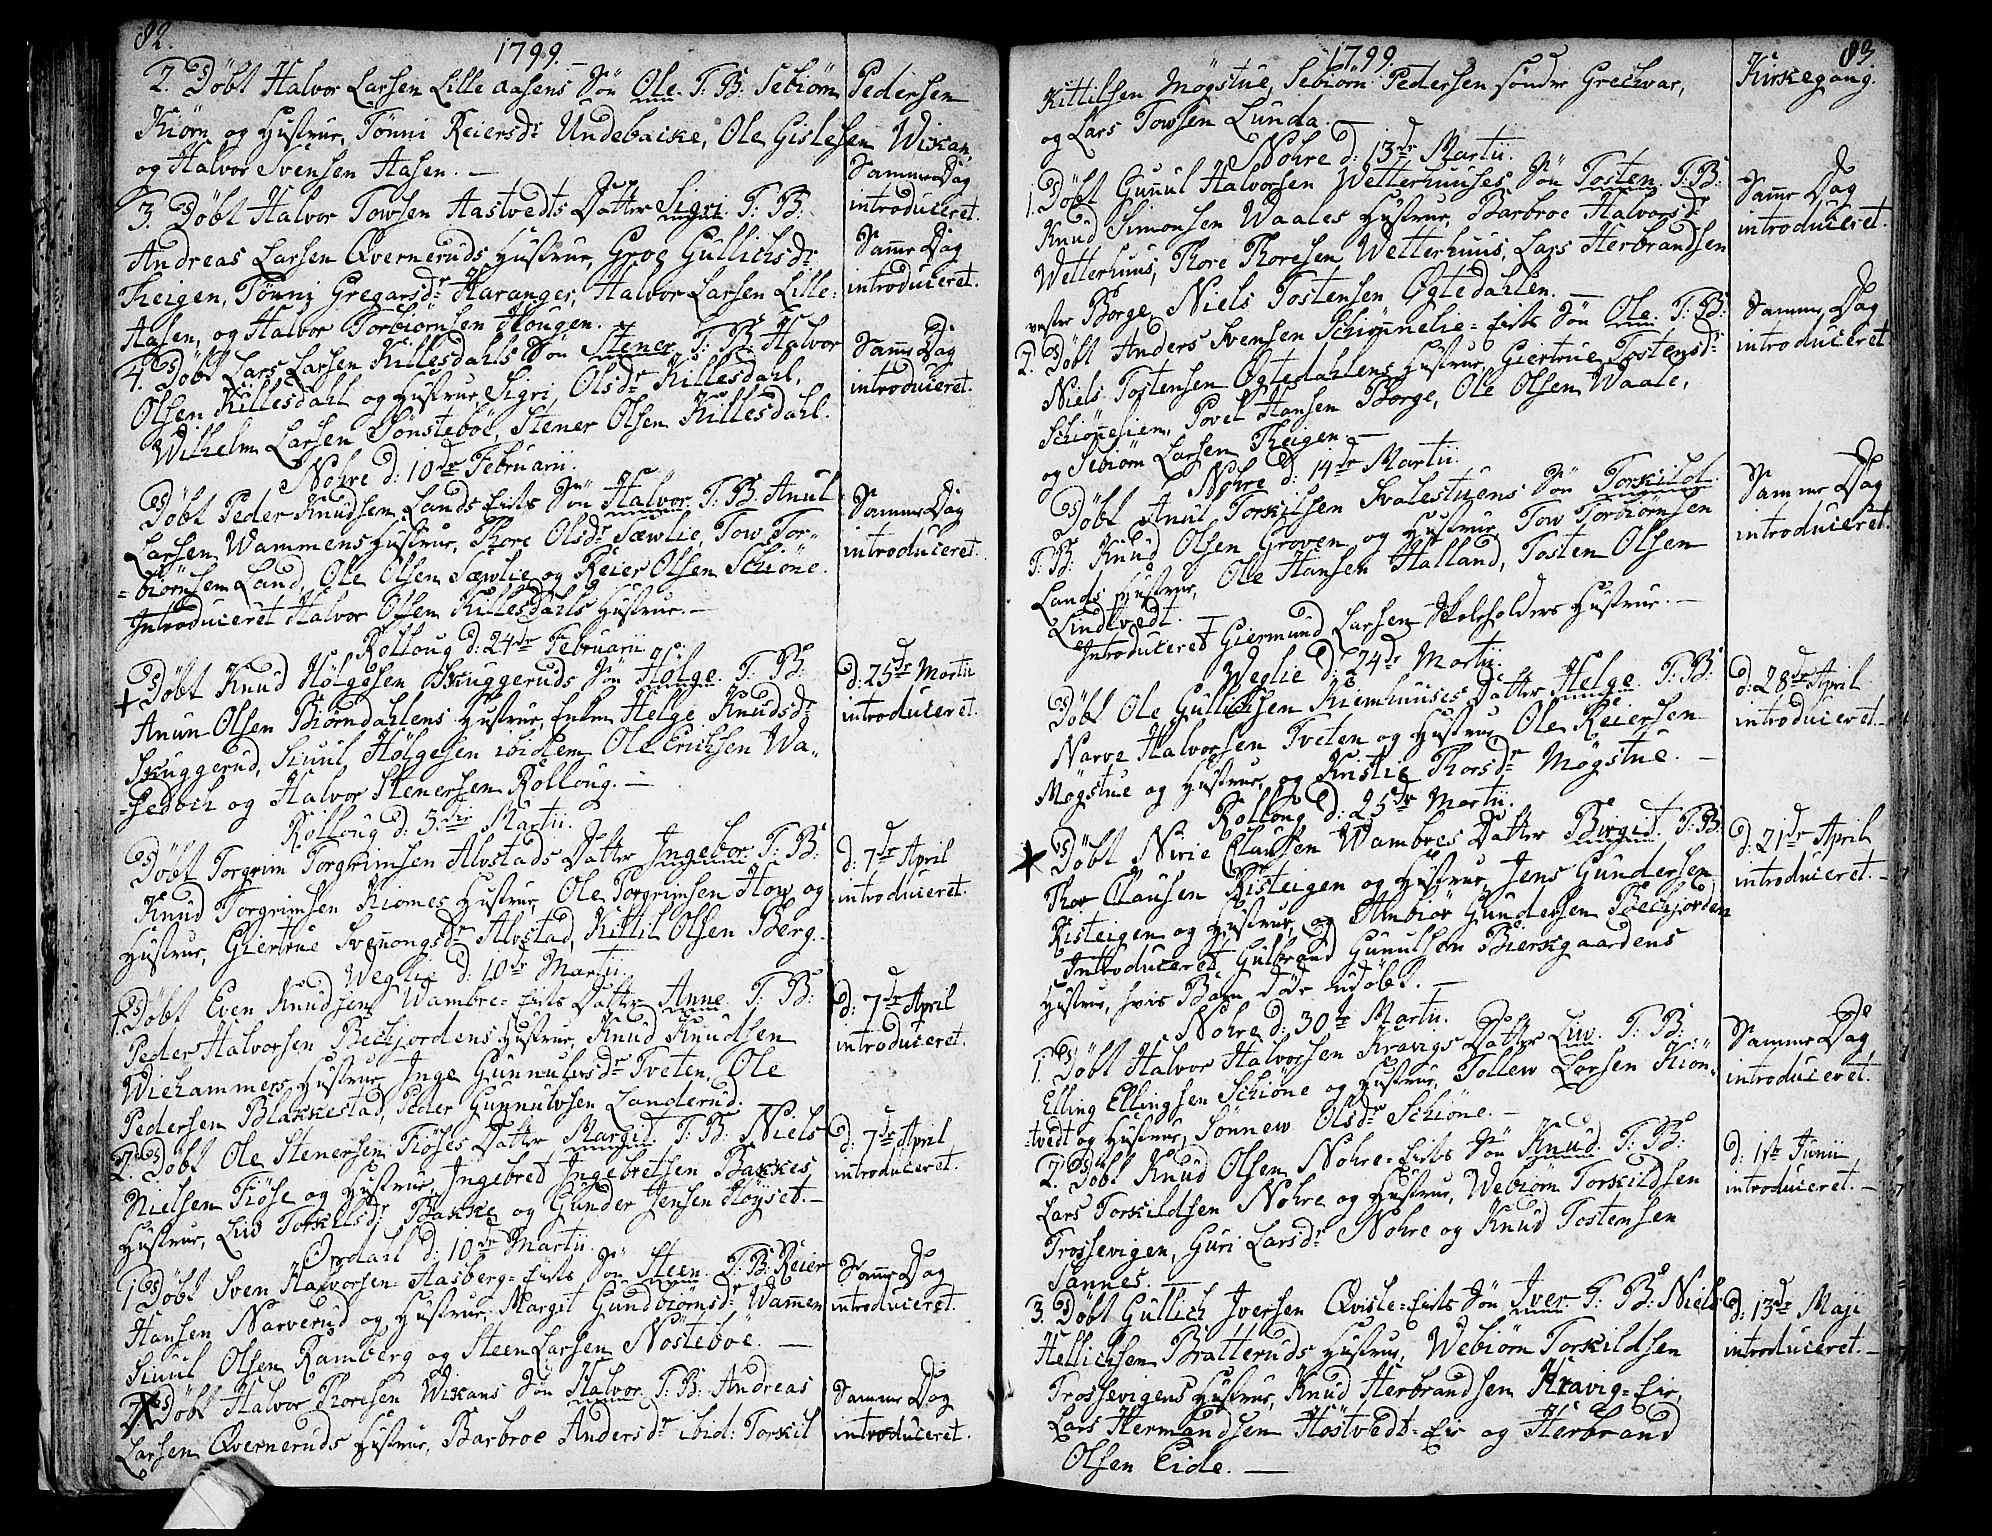 82.
1799.
2. Döbt Halvor Larsen Lille aasens Sön Ole. T. B: Sebiörn Pedersen
Kiörn og Hustrue, Tönni Reiersdr Undebacke, Ole Gislesen Wikan
og Halvor Svensen Aasen. —
Samme Dag
introduceret.
3. Döbt Halvor Towsen Aastvedts Datter Sigri. T. B:
Andreas Larsen Qverneruds Hustrue, Groe Gullichsdr
Theigen, Tönni Gregarsdr Haranger, Halvor Larsen Lille=
Aasen, og Halvor Torbiörnsen Hougen.
Same Dag
introduceret.
4. Döbt Lars Larsen Killesdahls Sön Stener. T. B: Halvor
Olsen Killesdahl og Hustrue Sigri Olsdr Killesdahl,
Wilhelm Larsen Tönsteböe, Stener Olsen Killesdahl.
Same Dag
introduceret.
Nohre d: 10de Februarii.
Döbt Peder Knudsen Lands-Eiets Sön Halvor. T. B: Anul
Larsen Wammens Hustrue, Thore Olsdr Sæwlie, Tow Tor-
=biörnsen Land, Ole Olsen Sæwlie og Reier Olsen Schiöne.
Introduceret Halvor Olsen Killesdahls Hustrue. —
Samme Dag
introduceret.
Rolloug d: 24de Februarii
+ Döbt Knud Hölgesen Skuggeruds Sön Hölge. T. B:
Anun Olsen Biörndahlens Hustrue, Enken Helge Knudsdr
Skuggerud, Siuul Hölgesen ibidem Ole Erichsen Wa-
=Sedbch og Halvor Stenersen Rolloug. —
d: 25de Martii
introduceret.
Rolloug d: 3die Martii.
Döbt Torgrim Torgrimsen Alvstads Datter Ingebor. T. B:
Knud Torgrimsen Kiomes Hustrue, Ole Torgrimsen How og
Hustrue, Giertrue Svenongsdr Alvstad, Kittil Olsen Berg.
d: 7de April
introduceret.
Weglie d: 10de Martii.
1. Döbt Even Knudsen Wambre-Eiets Datter Anne. T. B:
Peder Halvorsen Bechjordens Hustrue, Knud Knudsen
Wiehammers Hustrue Inge Gunnulvsdr Tveten, Ole
Pedersen Blakkestad, Peder Gunnulvsen Landerud.
d: 7de April
introduceret.
2. Döbt Ole Stenersen Fiöses Datter Margit. T. B: Niels
Nielsen Fiöse og Hustrue, Ingebret Ingebretsen Bakkes
Hustrue, Liv Torkilsdr Bakke og Gunder Jensen Höyset. —
d: 7de April
introduceret.
Opdahl d: 10de Martii.
1 Döbt Sven Halvorsen Aasberg-Eiets Sön Steen. T. B: Reier
Hansen Narverud og Hustrue, Margit Gundbiörnsdr Wamen
Siuul Olsen Ramberg og Steen Larsen Nösteböe. —
Same Dag
introduceret.
2 Döbt Halvor Thorsen Wikans Sön Halvor. T. B: Andreas
Larsen Qverneruds Hustrue, Barbroe Andersdr ibid: Torkil
Samme Dag
introduceret.
83.
1799.
Kirkegang.
Kittilsen Mögstue, Sebiörn Pedersen söndre Grechvar,
og Lars Towsen Lunda. —
Nohre d: 13de Martii.
1. Döbt Gunul Halvorsen Wetterhuuses Sön Tosten. T. B:
Knud Simonsen Waales Hustrue, Barbroe Halvorsdr
Wetterhuus, Thore Thoresen Wetterhuus, Lars Herbrandsen
vestre Borge, Niels Tostensen Ögtedahlen. —
Same Dag
introduceret.
2. Döbt Anders Svensen Schiönnelie-Eiets Sön Ole. T. B:
Niels Tostensen Ögtedahlens Hustrue, Giertrue Tostensdr
Schiönesien, Povel Hansen Borge, Ole Olsen Waale,
og Sebiörn Larsen Theigen. —
Samme Dag
introduceret.
Nohre d: 14de Martii.
Döbt Anul Torkilsen Svalestuens Sön Torkild.
T. B: Knud Olsen Groven og Hustrue, Tow Torbiörnsen
Lands Hustrue, Ole Hansen Halland, Tosten Olsen
Lindtvedt. —
Samme Dag
introduceret.
Introduceret Giermund Larsen Skoleholders Hustrue. —
Weglie d: 24de Martii.
Döbt Ole Gullichsen Kiemhuuses Datter Helge. T. B:
Narve Halvorsen Tveten og Hustrue Ole Reiersen
Mögstue og Hustrue, og Kristie Thorsdr Mögstue. —
d: 28de April
introduceret. —
Rolloug d: 25de Martii.
Döbt Nirie Clausen Wambres Datter Birgit. T. B:
Thor Clausen Risteigen og Hustrue, Jens Gundersen
Risteigen og Hustrue, og Anbiör Gundersen Bechjorden
Introduceret Gulbrand Gunulsen Bierkgaardens
Hustrue, hvis Barn döde udöbt. —
d: 21de April
introduceret. —
Nohre d: 30te Martii.
1. Döbt Halvor Halvorsen Kravigs Datter Liv. T. B:
Elling Ellingsen Schiöne og Hustrue, Tollew Larsen Kiön-
=tvedt og Hustrue, Sönnew Olsdr Schiöne. —
Samme Dag
introduceret.
2. Döbt Knud Olsen Nohre-Eiets Sön Knud. T. B:
Lars Torkildsen Nohre og Hustrue, Webiörn Torkildsen
Trossevigen, Guri Larsdr Nohre og Knud Tostensen
Sannes. —
d: 1ste Junii
introduceret. —
3. Döbt Gullich Iversen Qvisle-Eiets Sön Iver. T. B: Niels
Hellichsen Bratteruds Hustrue, Webiörn Torkildsen
Trossevigens Hustrue, Knud Herbrandsen Kravig-Eie,
Lars Hermandsen Höstvedt-Eie og Herbrand
Olsen Eide. —
d: 13de Maji
introduceret. —